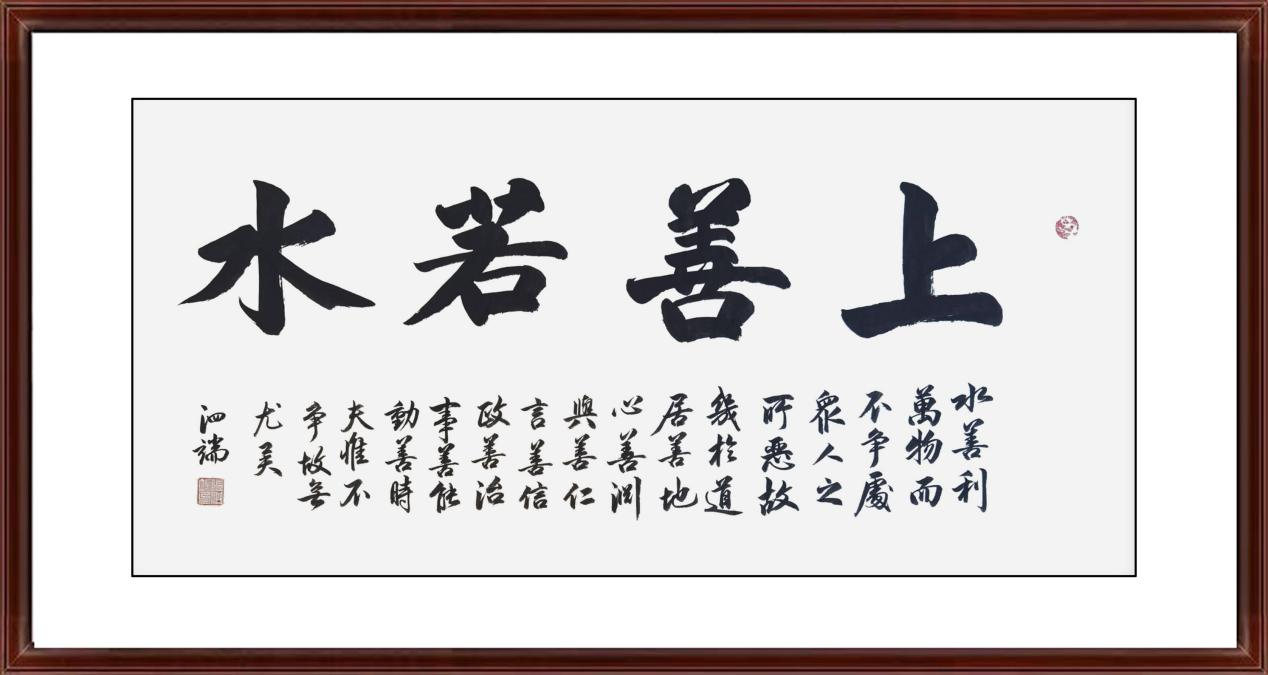 上善若水
水善利
萬物而
不争處
衆人之
所惡故
幾於道
居善地
心善渊
與善仁
言善信
政善治
事善能
動善時
夫惟不
争故无
尤矣
泗端